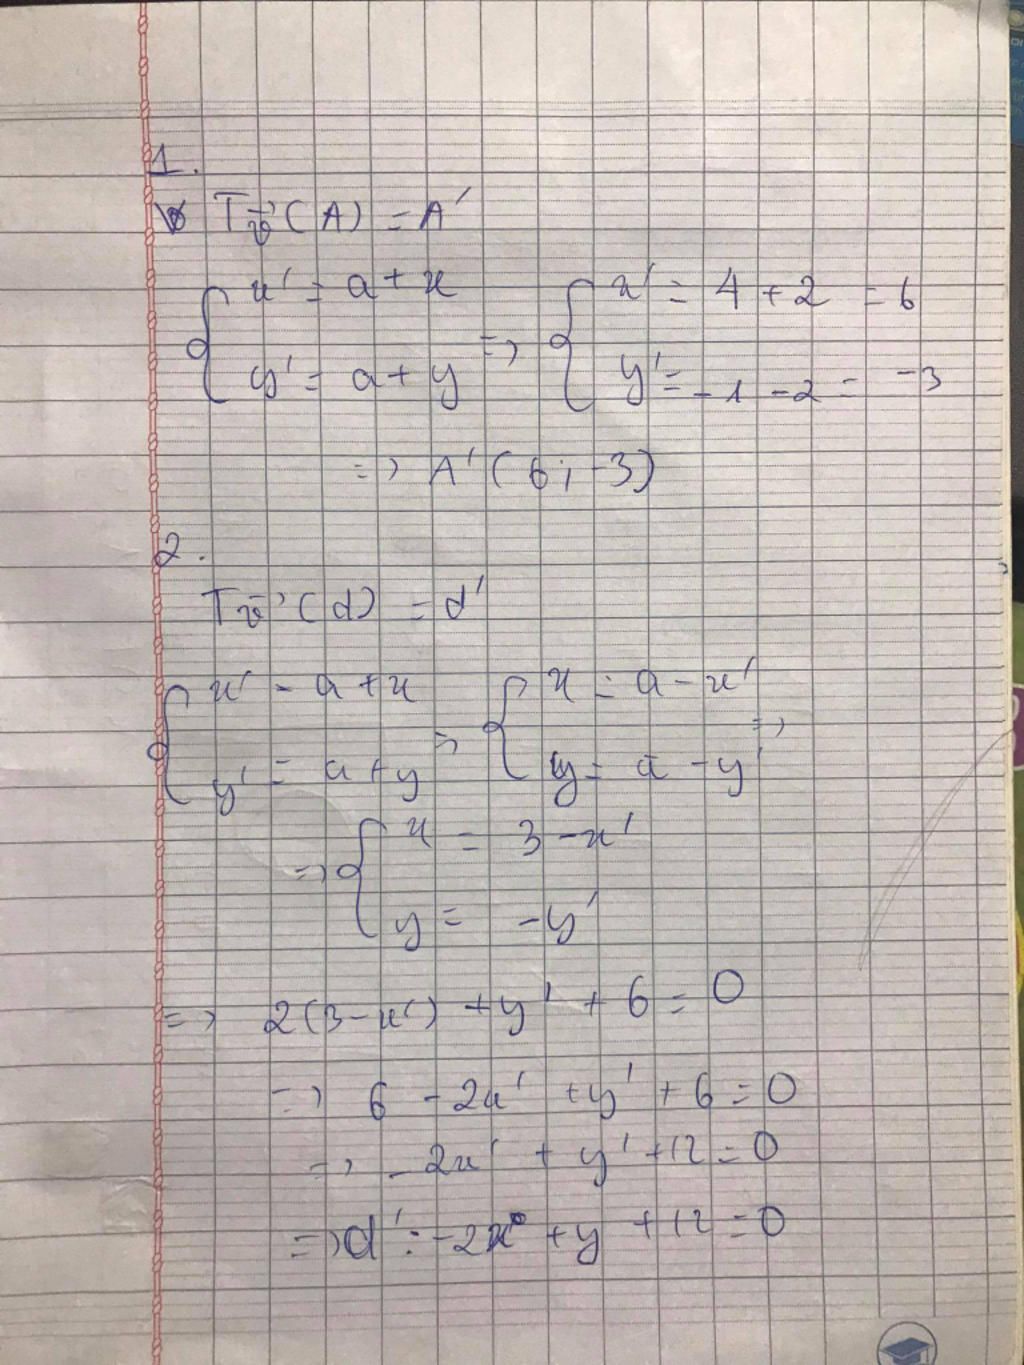 1.
T v⃗ (A) = A'
{ x' = a + x
y' = a + y => { x' = 4 + 2 = 6
y' = -1 - 2 = -3
=> A' (6; -3)
2.
T v⃗ (d) = d'
{ x' = a + x
y' = a + y => { x = a - x'
y = a - y' =>
=> { x = 3 - x'
y = -y'
=> 2(3 - x') + y' + 6 = 0
=> 6 - 2x' + y' + 6 = 0
=> -2x' + y' + 12 = 0
=> d' : -2x + y + 12 = 0